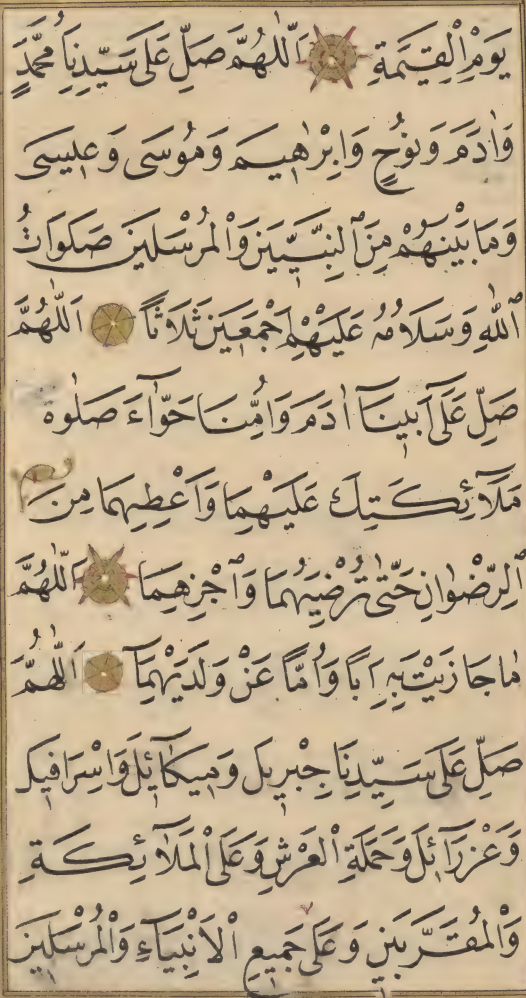 يَوْمِ الْقِيٰمَةِ اَللّٰهُمَّ صَلِّ عَلٰى سَيِّدِنَا مُحَمَّدٍ
وَاٰدَمَ وَنُوْحٍ وَاِبْرٰهِيْمَ وَمُوْسٰى وَعِيْسٰى
وَمَا بَيْنَهُمْ مِنَ النَّبِيّٖنَ وَالْمُرْسَلِيْنَ صَلَوَاتُ
اللّٰهِ وَسَلَامُهُ عَلَيْهِمْ اَجْمَعِيْنَ ثَلَاثًا اَللّٰهُمَّ
صَلِّ عَلٰٓى اَبِيْنَٓا اٰدَمَ وَاُمِّنَا حَوَّٓاءَ صَلٰوةَ
مَلَٓائِكَتِكَ عَلَيْهِمَا وَاَعْطِهِمَا مِنَ
الرِّضْوَانِ حَتّٰى تُرْضِيَهُمَا وَاجْزِهِمَا اَللّٰهُمَّ
مَا جَازَيْتَ بِهٖ اَبًا وَاُمًّا عَنْ وَلَدَيْهِمَٓا اَللّٰهُمَّ
صَلِّ عَلٰى سَيِّدِنَا جِبْرِيْلَ وَمِيْكَٓائِلَ وَاِسْرَافِيْلَ
وَعَزْرَٓائِلَ وَحَمَلَةِ الْعَرْشِ وَعَلَى الْمَلَٓائِكَةِ
وَالْمُقَرَّبِيْنَ وَعَلٰى جَمِيْعِ الْاَنْبِيَٓاءِ وَالْمُرْسَلِيْنَ